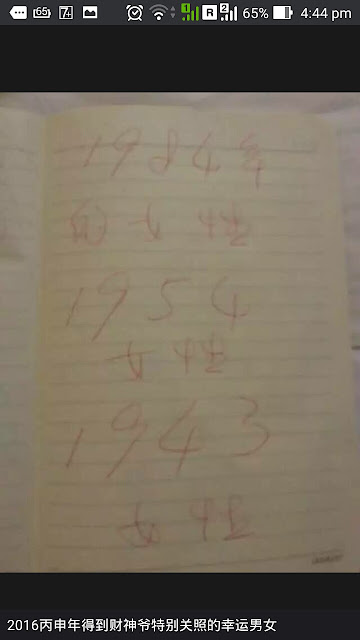 65%
4:44 pm
1984年
的女性
1954
女性
1943
女性
2016丙申年得到财神爷特别关照的幸运男女